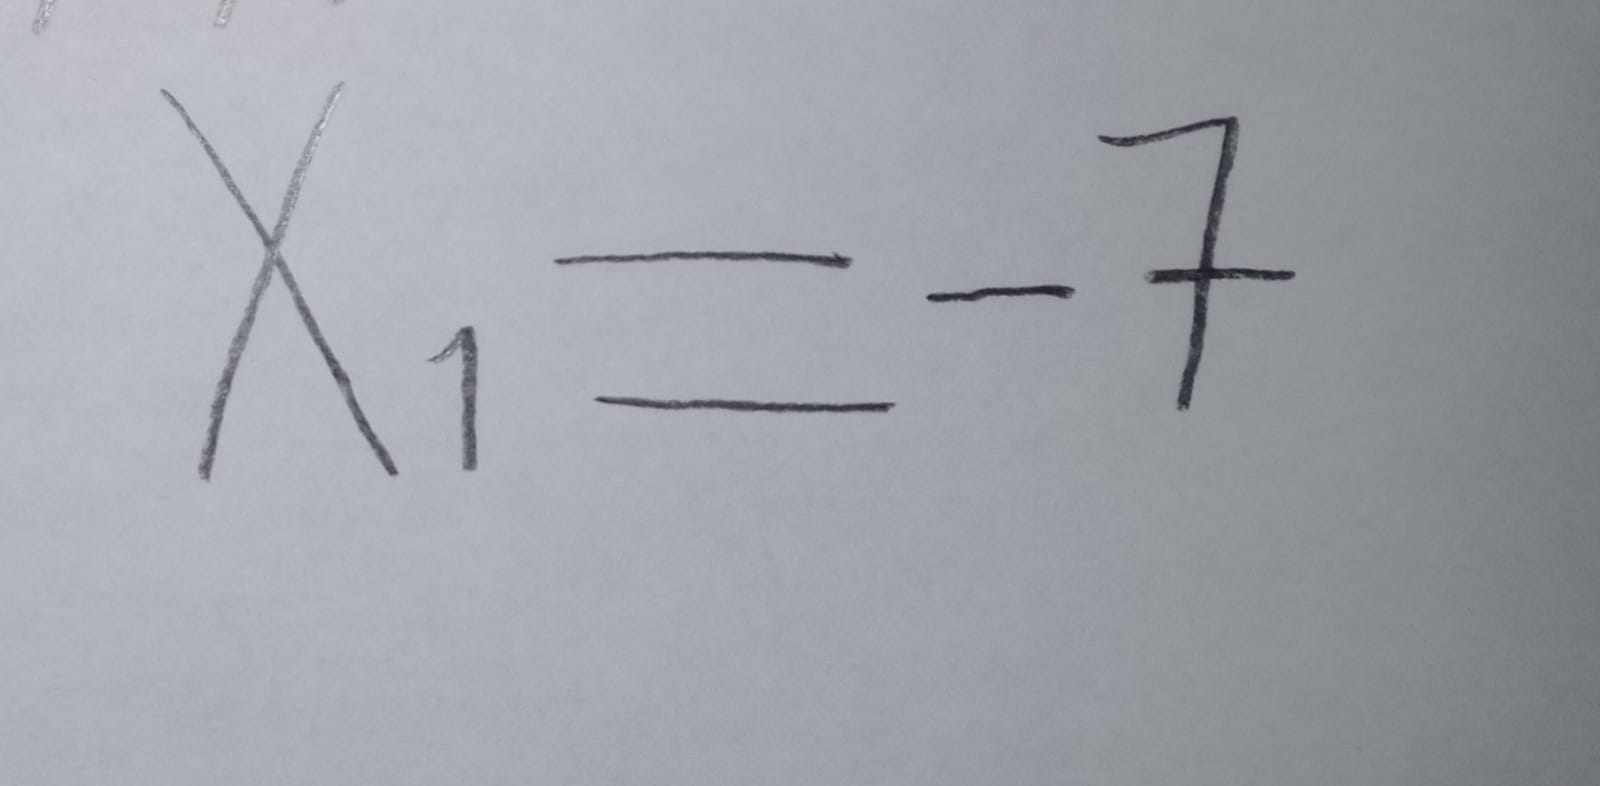 X₁ = -7